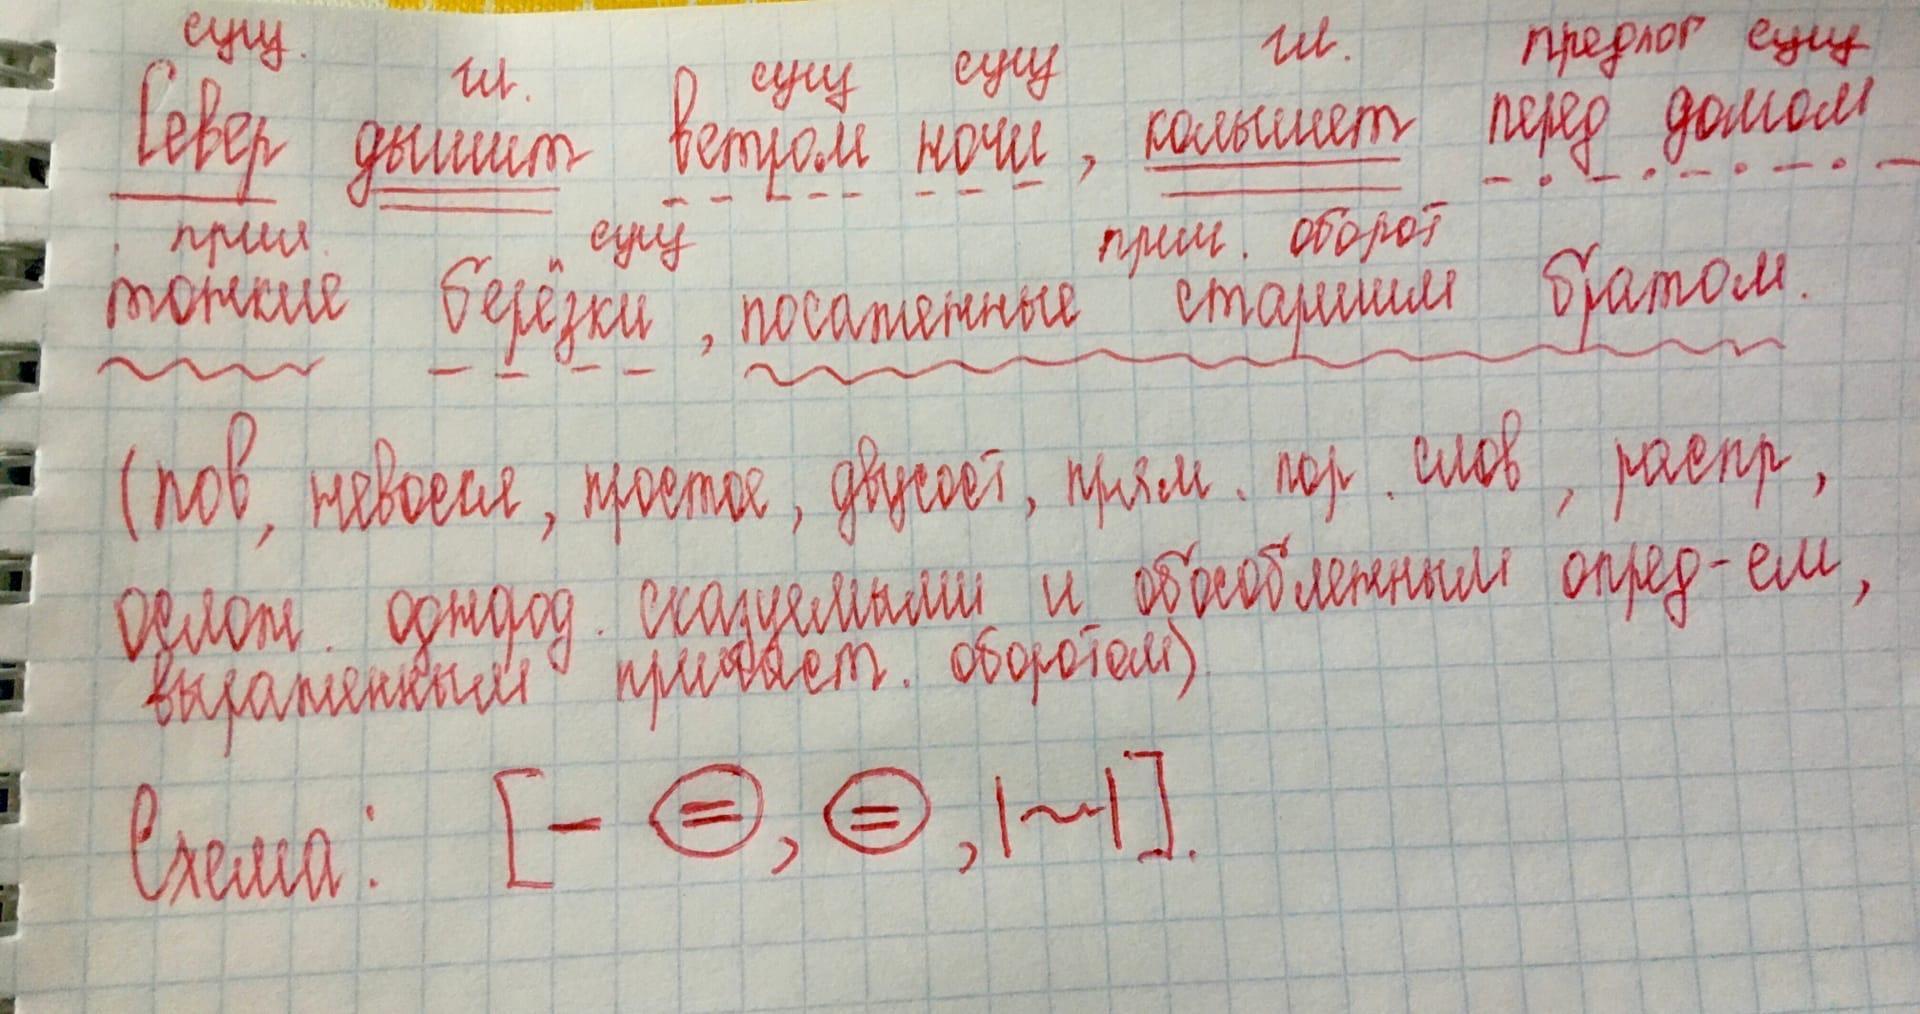 сущ. гл. сущ сущ гл. предлог сущ
Север дышит ветром ночи, колышет перед домом
прил. сущ прич. оборот
тонкие берёзки, посаженные старшим братом.
(пов, невоскл, простое, двусост, прям. пор. слов, распр,
ослож. однород. сказуемыми и обособленным опред-ем,
выраженным причаст. оборотом).
Схема: [– =, =, |~|].